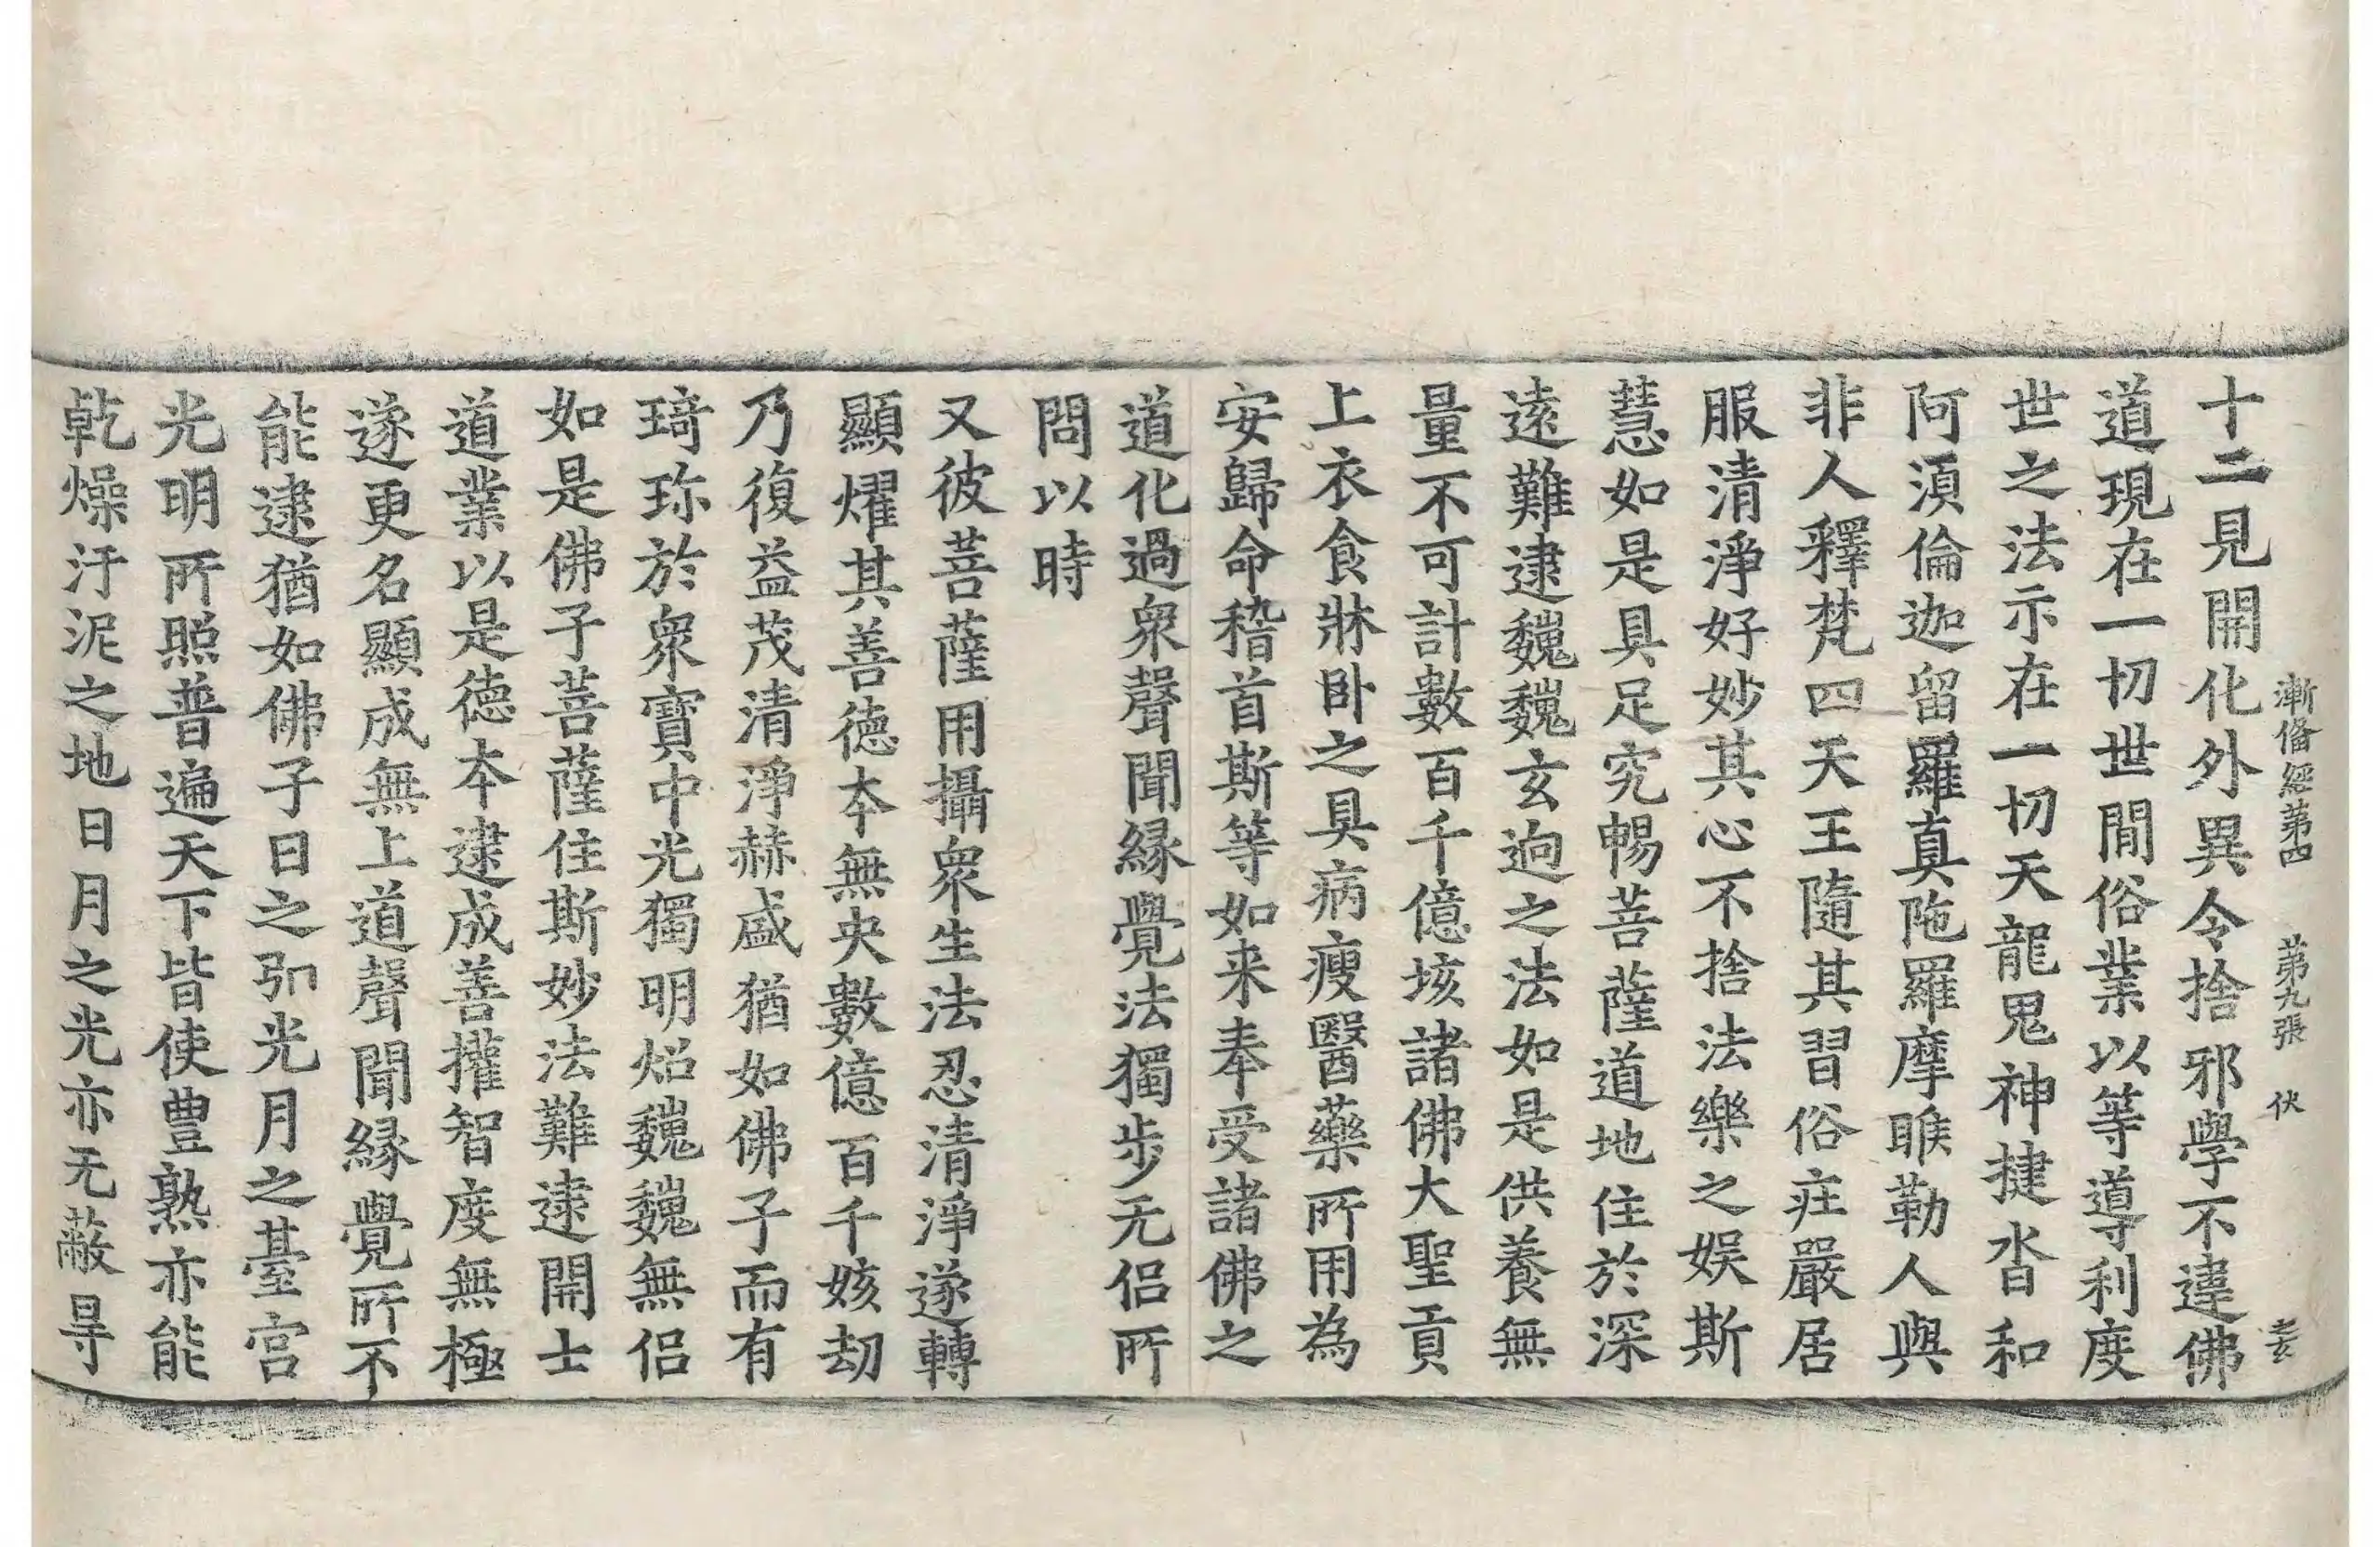 漸俻經苐四　苐九張　伏　玄
十二見開化外異令捨邪學不違佛
道現在一切世間俗業以等導利度
世之法示在一切天龍鬼神揵沓和
阿湏倫迦留羅真陁羅摩睺勒人與
非人釋梵四天王隨其習俗庄嚴居
服清淨好妙其心不捨法樂之娛斯
慧如是具足究暢菩薩道地住於深
遠難逮巍巍玄逈之法如是供養無
量不可計數百千億垓諸佛大聖貢
上衣食牀臥之具病瘦醫藥所用為
安歸命稽首斯等如来奉受諸佛之
道化過衆聲聞縁覺法獨步无侣所
問以時
又彼菩薩用攝衆生法忍清淨遂轉
顯燿其善德夲無央數億百千姟劫
乃復益茂清淨赫盛猶如佛子而有
琦珎於衆寶中光獨明炤巍巍無侣
如是佛子菩薩住斯妙法難逮開士
道業以是德夲逮成善權智度無極
遂更名顯成無上道聲聞縁覺所不
能逮猶如佛子日之形光月之臺宫
光明所照普遍天下皆使豊熟亦能
乾燥汙泥之地日月之光亦无蔽㝵